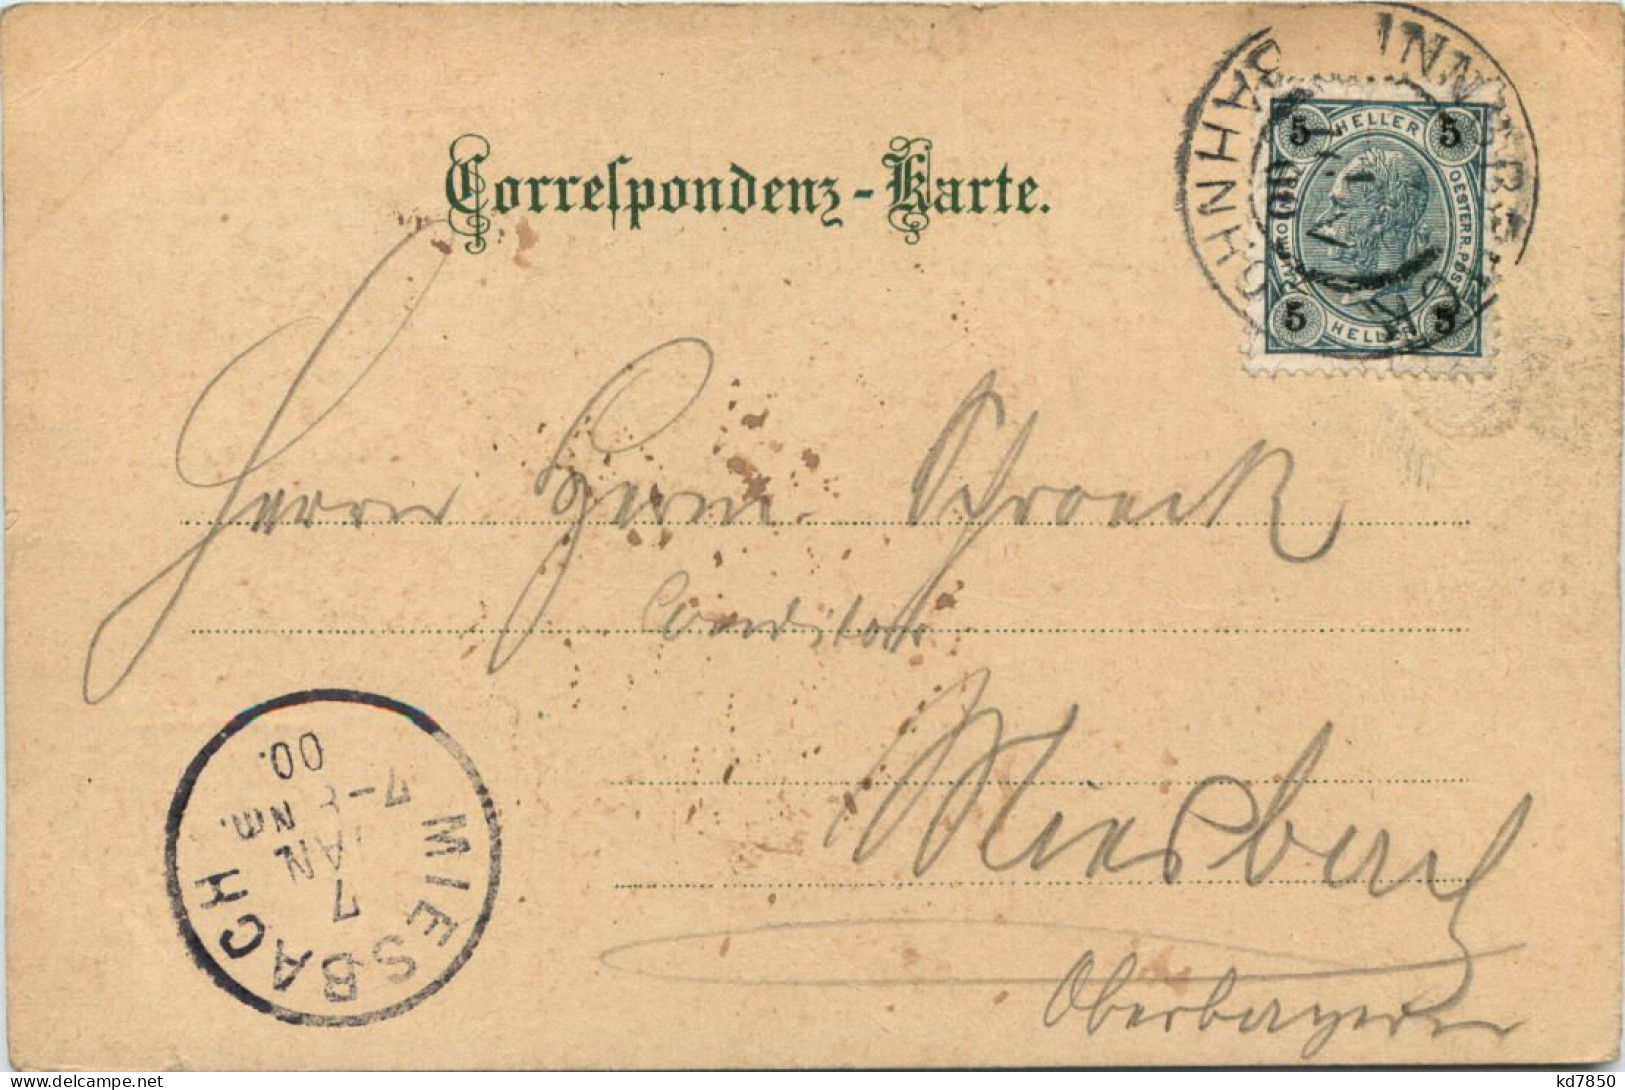 Correspondenz-Karte.
INNSBRUCK
BAHNHOF
5 HELLER 5
OESTERR. POST
5 HELLER 5
Herrn Herm. Schroeck
Conditor
Miesbach
Oberbayern
MIESBACH
7
JAN
NM.
00.
kd7850